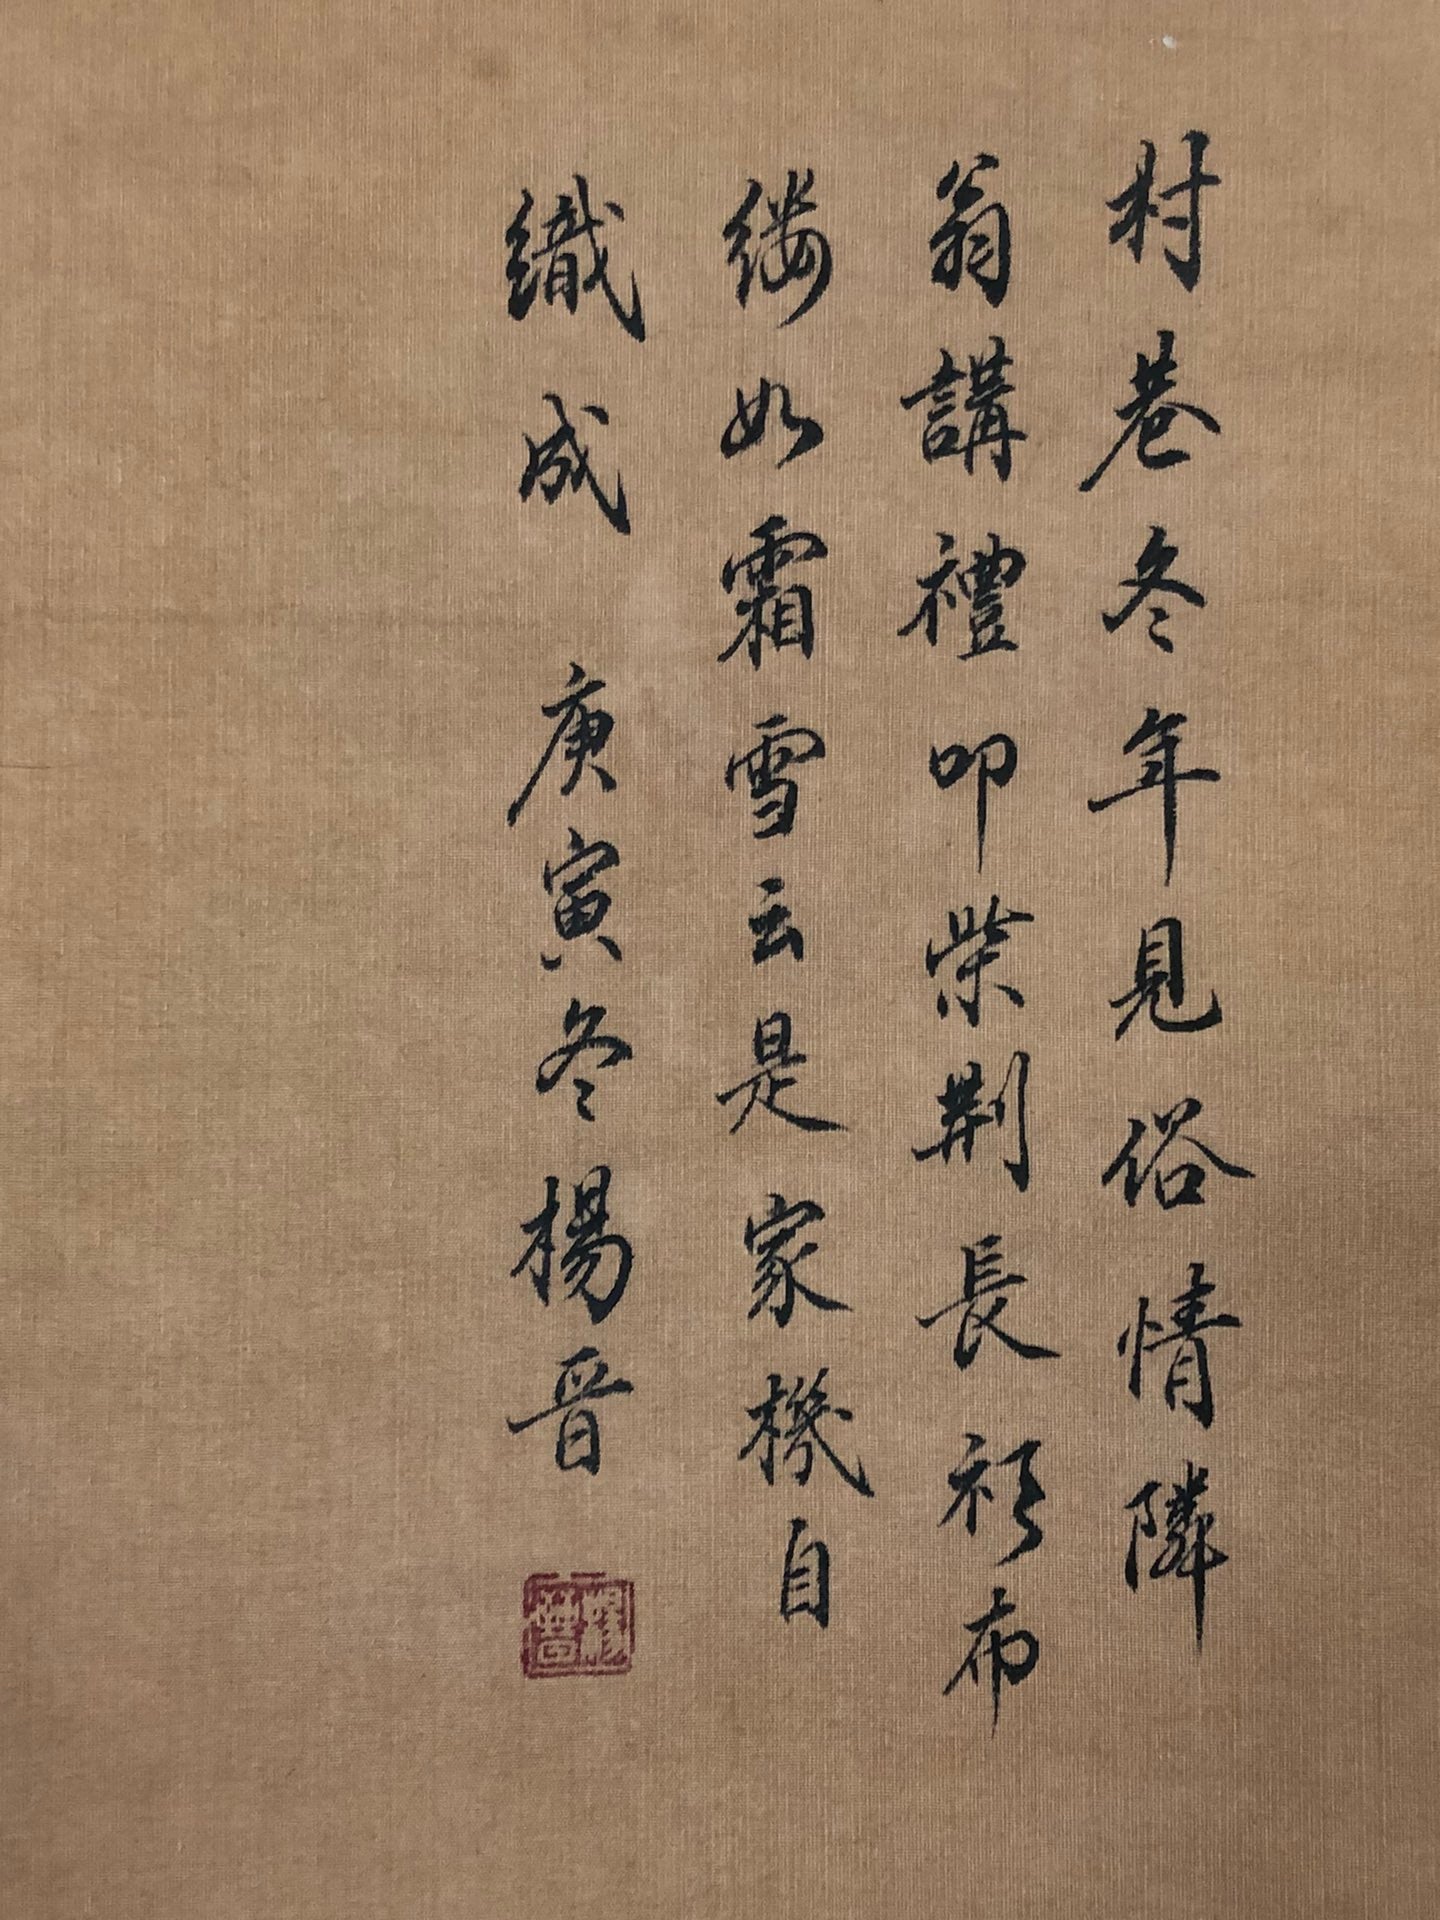 村巷冬年見俗情隣
翁講禮叩柴荆長衫布
縷如霜雪云是家機自
織成 庚寅冬楊晉